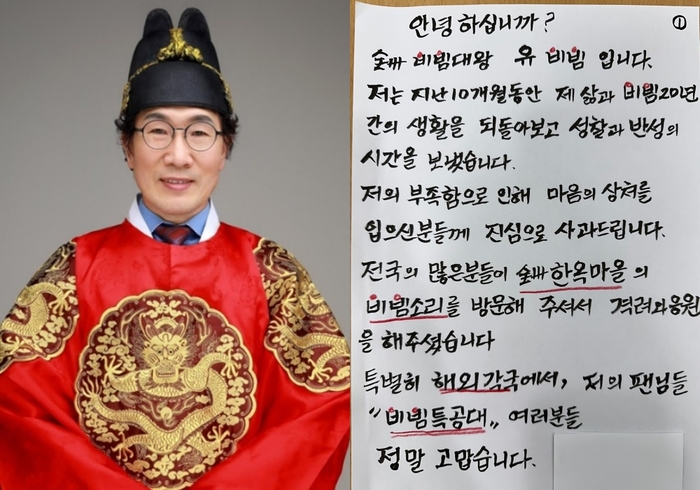 ①
안녕하십니까?
全州 비빔대왕 유 비빔 입니다.
저는 지난10개월동안 제 삶과 비빔20년
간의 생활을 되돌아보고 성찰과 반성의
시간을 보냈습니다.
저의 부족함으로 인해 마음의 상처를
입으신분들께 진심으로 사과드립니다.
전국의 많은분들이 全州 한옥마을의
비빔소리를 방문해 주셔서 격려와응원
을 해주셨습니다
특별히 해외각국에서, 저의 팬님들
"비빔특공대" 여러분들
정말 고맙습니다.